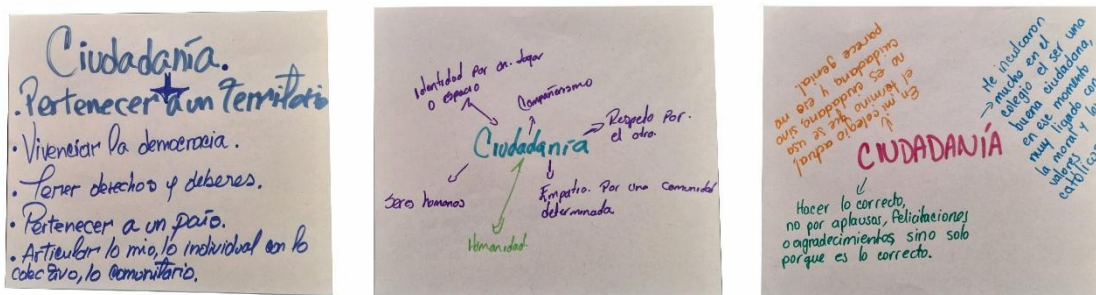 Ciudadanía.
· Pertenecer a un Territorio
· Vivenciar la democracia.
· Tener derechos y deberes.
· Pertenecer a un país.
· Articular lo mio, lo individual con lo
colectivo, lo comunitario.
Identidad por un lugar
o espacio
Compañerismo
Respeto Por
el otro.
Ciudadanía
Seres humanos
Empatia. Por una comunidad
determinada
Humanidad.
En mi colegio actual,
el término que se usa
no es ciudadano sino
cuidadano y eso me
parece genial
Me inculcaron
mucho en el
colegio el ser una
buena ciudadana,
en ese momento
muy ligado con
la moral y los
valores
católicos
CIUDADANÍA
Hacer lo correcto,
no por aplausos, felicitaciones
o agradecimientos, sino solo
porque es lo correcto.